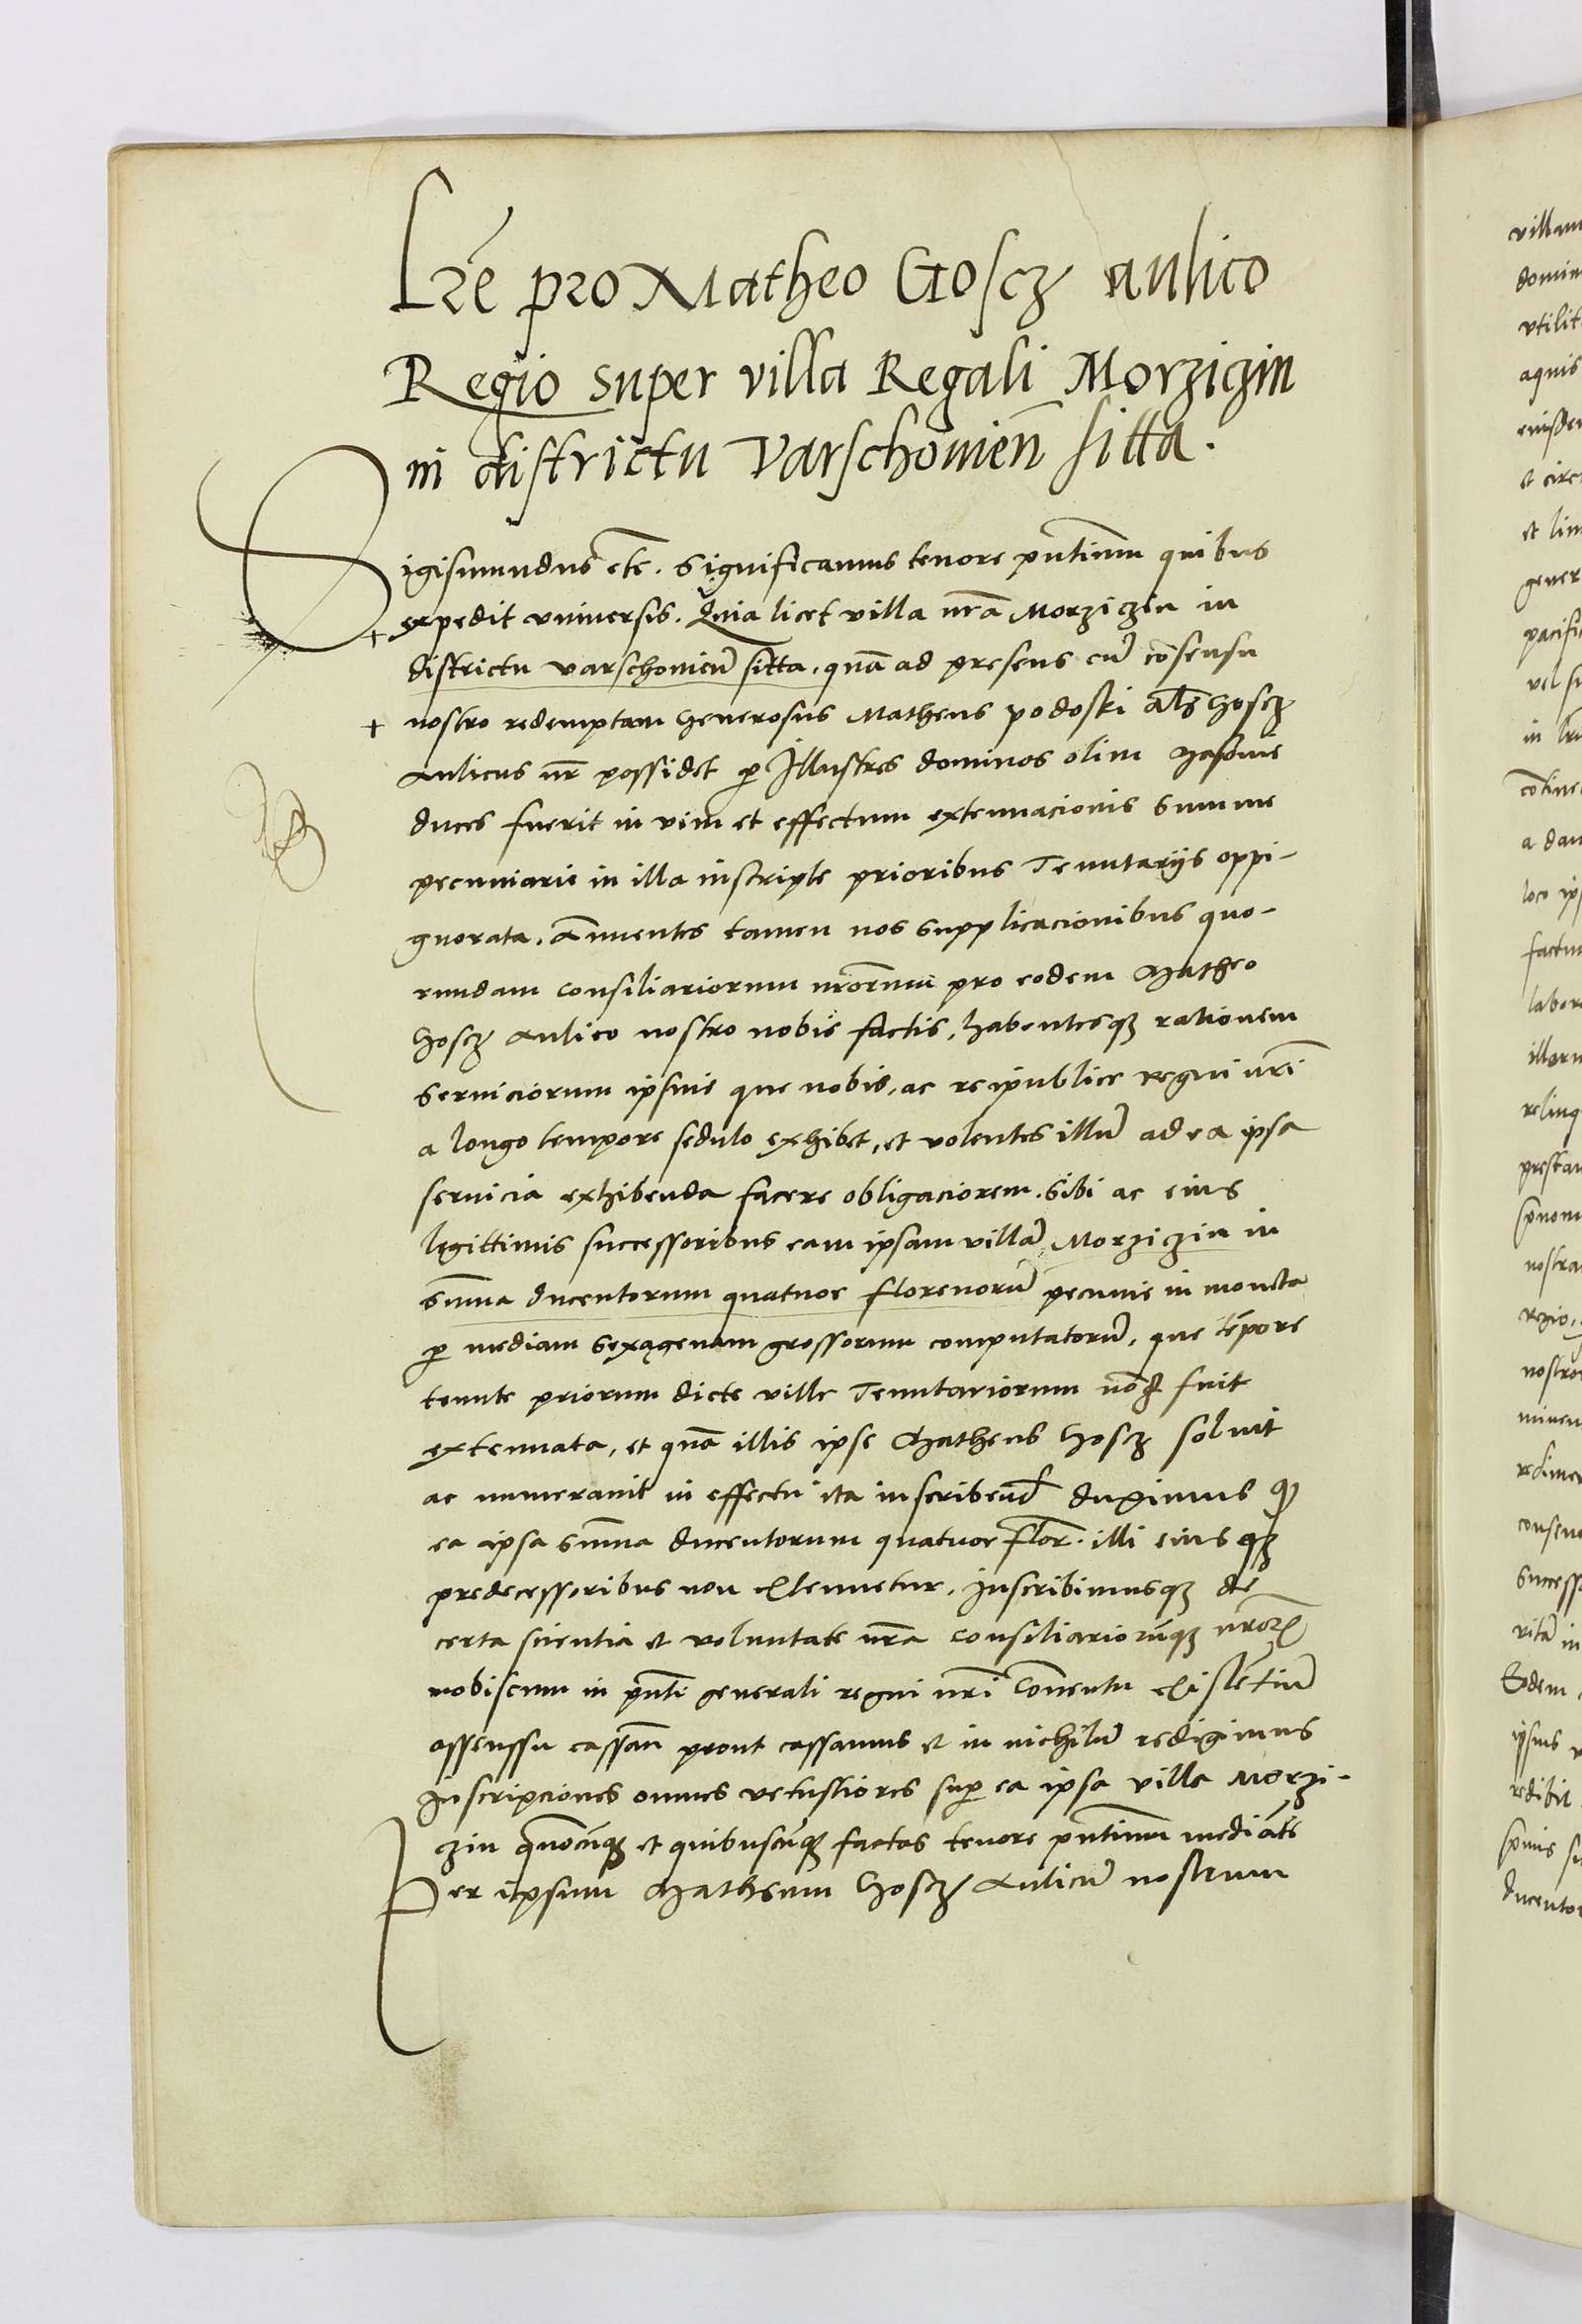 Lrē pro Matheo Goscz aulico
Regio super villa Regali Morziczin
in districtu Varschouień sitta.
Sigisimundus etc. Significamus tenore pñtium quibus
expedit vniuersis. Quia licet villa nrã Morziczin in
districtu varschouień sitta, quã ad presens cũ cõsensu
nostro redemptam generosus Matheus podoski als goscz
Aulicus nr̄ possidet p Illustres dominos olim Masouie
duces fuerit in vim et effectum extenuacionis summe
pecuniarie in illa inscripte prioribus Tenutarijs oppi-
gnorata. Annuentes tamen nos supplicacionibus quo-
rundam consiliariorum nrõrum pro eodem Matheo
Goscz Aulico nostro nobis factis, habentesqȝ rationem
seruiciorum ipsius que nobis, ac reipublice regni nrī
a longo tempore sedulo exhibet, et volentes illũ ad ea ipsa
seruicia exhibenda facere obligaciorem. sibi ac eius
legittimis successoribus eam ipsam villã Morziczin in
sūma ducentorum quatuor florenorũ pecunie in moneta
p mediam sexagenam grossorum computatorũ, que tēpore
tenute priorum dicte ville Tenutariorum nõ fuit
extenuata, et quã illis ipse Matheus Goscz soluit
ac numerauit in effectu ita inscribend duximus qđ
ea ipsa sūma ducentorum quatuor flor. illi eiusqȝ
predecessoribus non extenuetur. Inscribimusqȝ de
certa scientia et voluntate nrã consiliariorũqȝ nrõrȝ
nobiscum in pñti generali regni nrī Conuentu existētiũ
assenssu cassañ prout cassamus et in nichilũ redigimus
Inscripciones omnes vetustiores sup ea ipsa villa Morzi-
czin quocũqȝ et quibuscũqȝ factas tenore pñtium mediãte
Per ipsum Matheum Goscz Aulicũ nostrum
villam
domin
vtilit
aquis
eiusdem
et circ
et lim
gener
pacifi
vel su
in
cõtine
a dan
loco ip
factu
labor
illoru
relinq
prestan
nostra
regio,
nostro
redimen
consens
success
ritã in
Eodem
ipsius
redibit
ducento